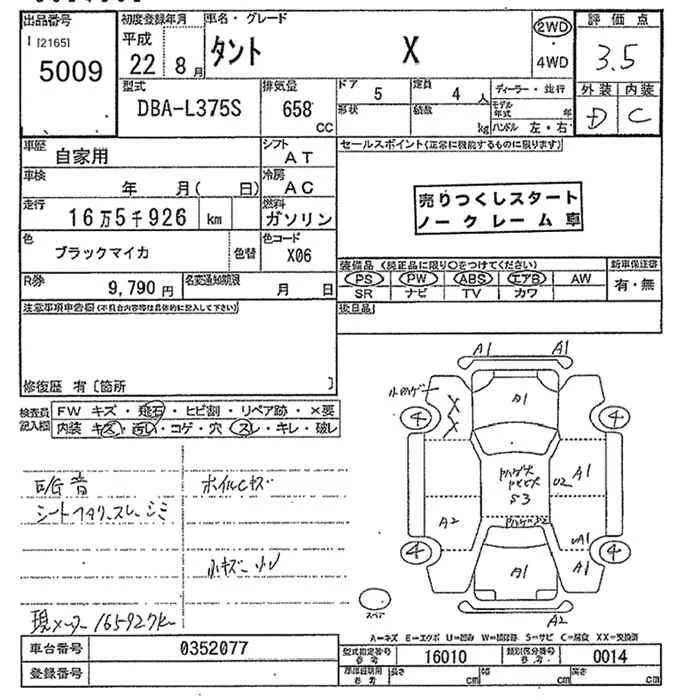 出品番号
[2165]
5009
初度登録年月
平成
22年8月
車名・グレード
タント X
2WD
・
4WD
評価点
3.5
外装 内装
D C
型式
DBA-L375S
排気量
658 cc
ドア 5
定員 4 人
形状
積載 kg
ディーラー・並行
モデル年式 年
ハンドル 左・右
車歴
自家用
シフト
AT
車検
年 月( 日)
冷房
AC
走行
16万5千926 km
燃料
ガソリン
色
ブラックマイカ
色替
色コード
X06
R券
9,790円
名変通知期限
月 日
セールスポイント(正常に機能するものに限ります)
売りつくしスタート
ノークレーム車
装備品(純正品に限り○をつけてください)
PS PW ABS エアB AW
SR ナビ TV カワ
新車保証書
有・無
注意事項申告欄(不具合内容等は具体的に記入して下さい)
後日品
修復歴 有〔箇所 〕
検査員
記入欄
FW キズ・飛石・ヒビ割・リペア跡・×要
内装 キズ・汚れ・コゲ・穴・スレ・キレ・破レ
E/G音
ホイルCキズ
シート スレ シミ
小キズ
現メーター165927K
A1 A1
小ハゲ
X
X
A1
4 4
S3
U2 A1
A2
A1
4 4
A1 A1
スペア
A2
A=キズ E=エクボ U=凹み W=補修跡 S=サビ C=腐食 XX=交換済
車台番号
0352077
登録番号
型式指定番号
参考
16010
類別区分番号
参考
0014
参考
長さ cm
幅 cm
高さ cm